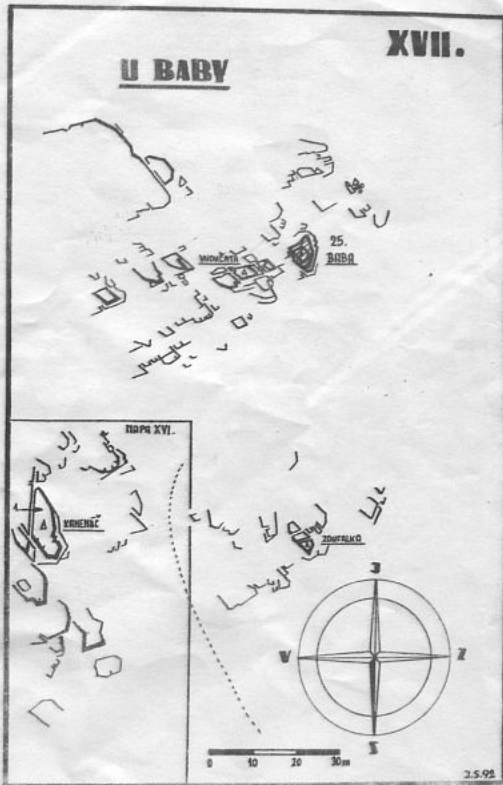 XVII.
U BABY
VNOUČATA
25.
BABA
MAPA XVI.
KAMENÁČ
ZOUFALKA
J
V
Z
S
0 10 20 30m
2.5.92